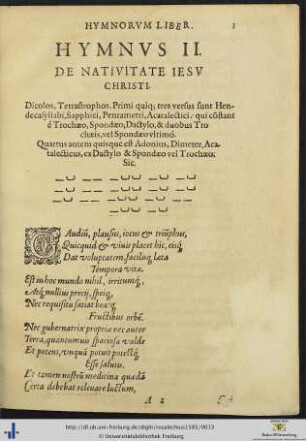 HYMNORVM LIBER. 3
HYMNVS II.
DE NATIVITATE IESV
CHRISTI.
Dicolos, Tetrastrophos. Primi quiq; tres versus sunt Hen-
decasyllabi, Sapphici, Pentametri, Acatalectici: qui cõstant
è Trochæo, Spondæo, Dactylo, & duobus Tro
chæis, vel Spondæo vltimò.
Quartus autem quisque est Adonius, Dimeter, Aca-
talecticus, ex Dactylo & Spondæo vel Trochæo:
Sic.
GAudiũ, plausus, iocus & triũphus,
Quicquid & viuis placet hîc, eisq́
Dat voluptatem, facilíq́ læta
Tempora vitæ.
Est in hoc mundo nihil, irritumq́,
Atq́ nullius precij, speiq́,
Nec requisitu satiat beatq́
Fructibus orbẽ.
Nec gubernatrix propria nec autor
Terra, quantumuis spaciosa valdè
Et potens, vnquã potuit potestq́
Esse salutis.
Et tamen nostrũ medicina quædã
Certa debebat releuare luctum,
A 2
http://dl.ub.uni-freiburg.de/diglit/nouatechius1581/0013
© Universitätsbibliothek Freiburg